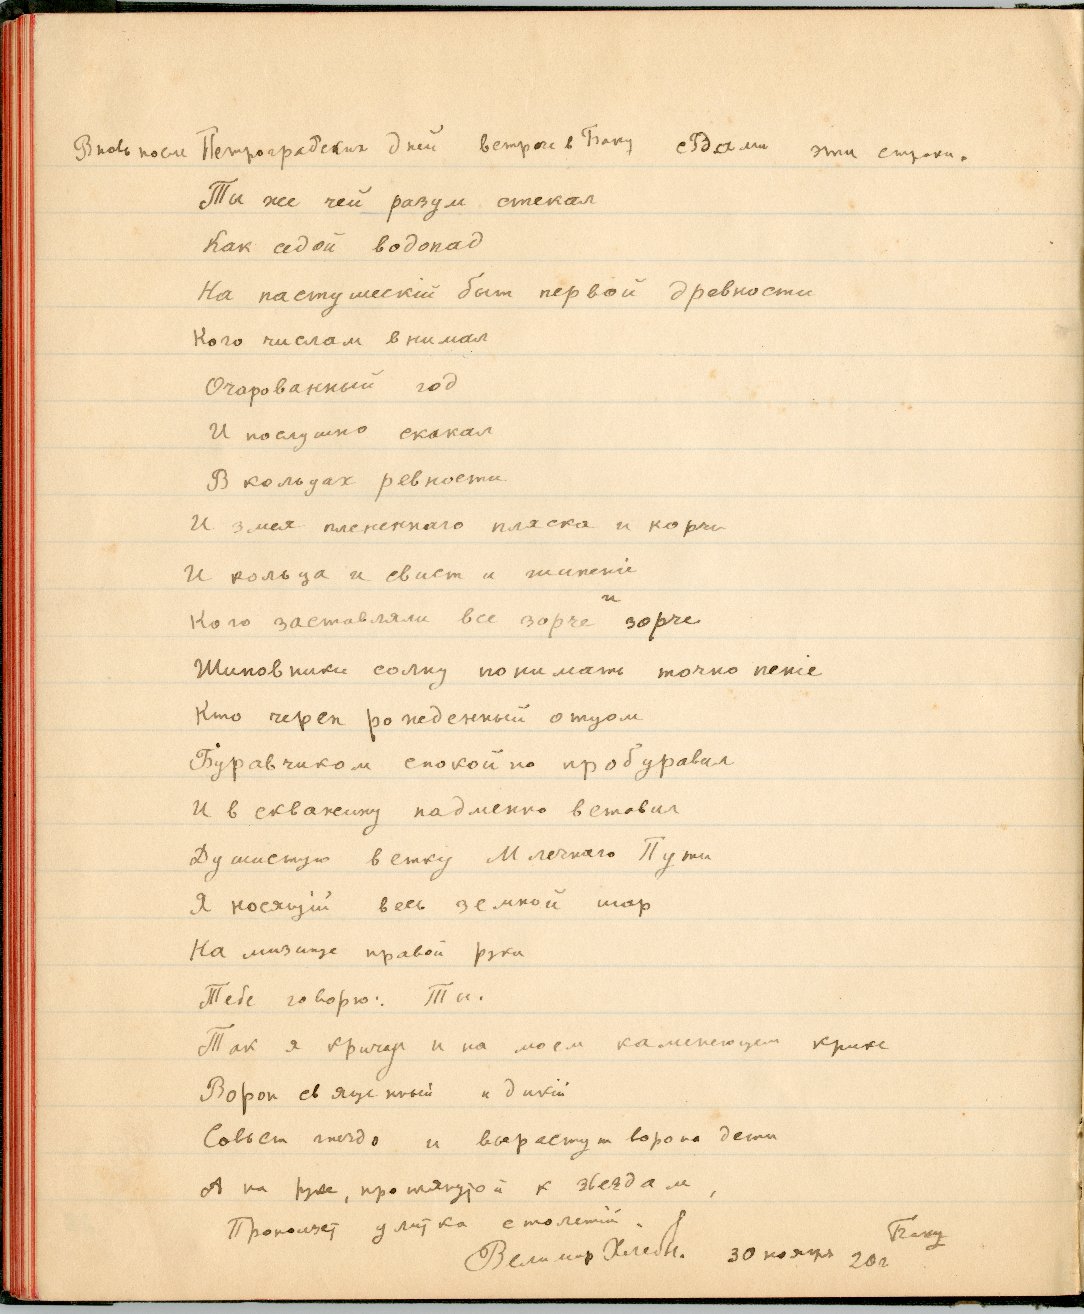 Вновь после Петроградских дней встречи в Баку с Вами эти строки.
Ты же чей разум стекал
Как седой водопад
На пастушескій быт первой древности
Кого числам внимал
Очарованный год
И послушно скакал
В кольцах ревности
И змея плененнаго пляска и корчи
И кольца и свист и шипеніе
Кого заставляли все зорче и зорче
Шиповники солнц понимать точно пеніе
Кто череп рожденный отцом
Буравчиком спокойно пробуравил
И в скважину надменно вставил
Душистую ветку Млечнаго Пути
Я носящій весь земной шар
На мизинце правой руки
Тебе говорю: Ты.
Так я кричу и на моем каменеющем крике
Ворон священный и дикій
Совьет гнездо и вырастут ворона дети
А на руке, протянутой к звездам,
Проползет улитка столетій.
Велимир Хлебн. 30 ноября 20г Баку